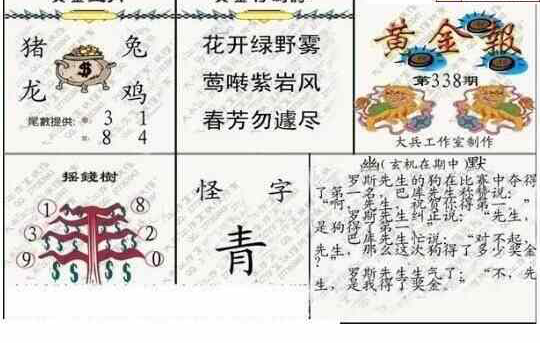 猪 兔
龙 鸡
尾數提供: 3 1
8 4
花开绿野雾
莺啭紫岩风
春芳勿遽尽
黄金報
第338期
大兵工作室制作
摇錢樹
1 8
3 2
9 0
怪 字
青
幽(玄机在期中)默
罗斯先生的狗在比赛中夺得
了第一名，巴库先生称赞说：
“啊，先生，祝贺你得第一。”
罗斯先生纠正说：“先生，
是狗得了第一。”
巴库先生忙说：“对不起，
先生，那么这次狗得了多少奖金
？”
罗斯先生生气了：“不，先
生，是我得了奖金。”